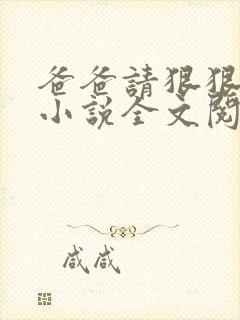 爸爸請狠狠
小說全文閱
咸咸